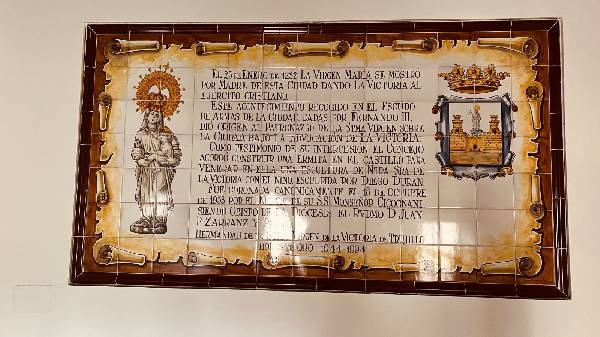 EL 25 DE ENERO DE 1232 LA VIRGEN MARÍA SE MOSTRÓ
POR MADRE DE ESTA CIUDAD DANDO LA VICTORIA AL
EJÉRCITO CRISTIANO.
ESTE ACONTECIMIENTO RECOGIDO EN EL ESCUDO
DE ARMAS DE LA CIUDAD, DADAS POR FERNANDO III,
DIÓ ORIGEN AL PATRONAZGO DE LA STMA VIRGEN SOBRE
LA CIUDAD BAJO LA ADVOCACIÓN DE LA VICTORIA.
COMO TESTIMONIO DE SU INTERCESIÓN, EL CONCEJO
ACORDÓ CONSTRUIR UNA ERMITA EN EL CASTILLO PARA
VENERAR EN ELLA UNA ESCULTURA DE NTRA. SRA. DE
LA VICTORIA CON EL NIÑO, ESCULPIDA POR DIEGO DURÁN
FUE CORONADA CANÓNICAMENTE EL 18 DE OCTUBRE
DE 1953 POR EL DE SU S.S. MONSEÑOR CICOGNANI,
SIENDO OBISPO DE LA DIÓCESIS EL RVDMO D. JUAN
P. ZARRANZ Y
HERMANDAD DE VIRGEN DE LA VICTORIA DE TRUJILLO
1944 - 1994